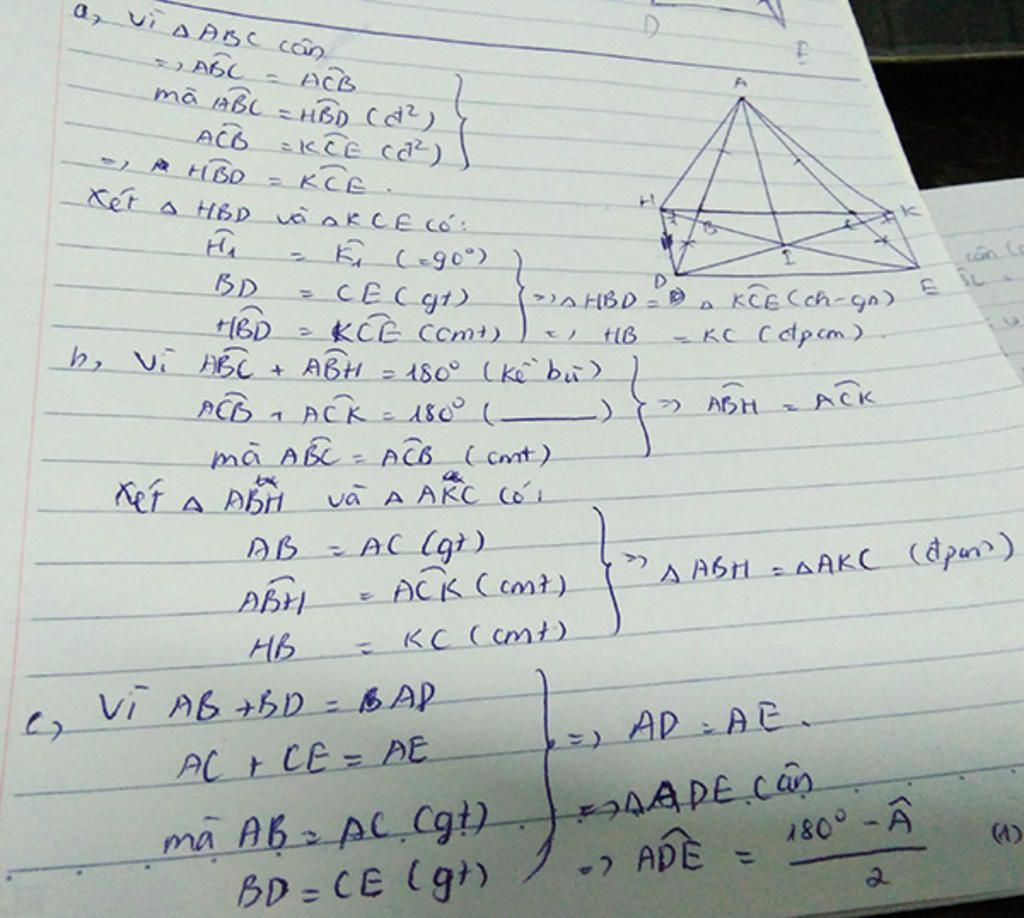 a, Vì △ABC cân
=> ABĈ = AĈB
mà AB̂C = HB̂D (đ²)
AĈB = KĈE (đ²)
=> HB̂D = KĈE.
Xét △ HBD và △KCE có:
Ĥ₁ = K̂₁ (=90°)
BD = CE (gt)
HB̂D = KĈE (cmt)
=> △HBD = △ KCE (ch-gn)
=> HB = KC (đpcm).
b, Vì AB̂C + AB̂H = 180° (kề bù)
AĈB + AĈK = 180° (———)
mà AB̂C = AĈB (cmt)
=> AB̂H = AĈK
Xét △ ABH và △ AKC có:
AB = AC (gt)
AB̂H = AĈK (cmt)
HB = KC (cmt)
=> △ABH = △AKC (đpcm)
c, Vì AB + BD = AD
AC + CE = AE
mà AB = AC (gt)
BD = CE (gt)
=> AD = AE.
=> △ADE cân
=> AD̂E = (180° - Â)/2 (1)
A
H
B
C
K
I
D
E
D
E